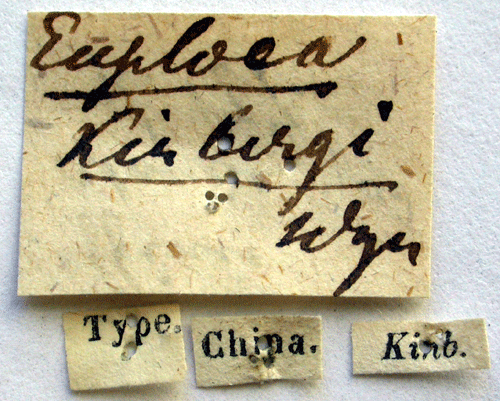 Euploea
Kinbergi
Wgn
Type.
China.
Kinb.